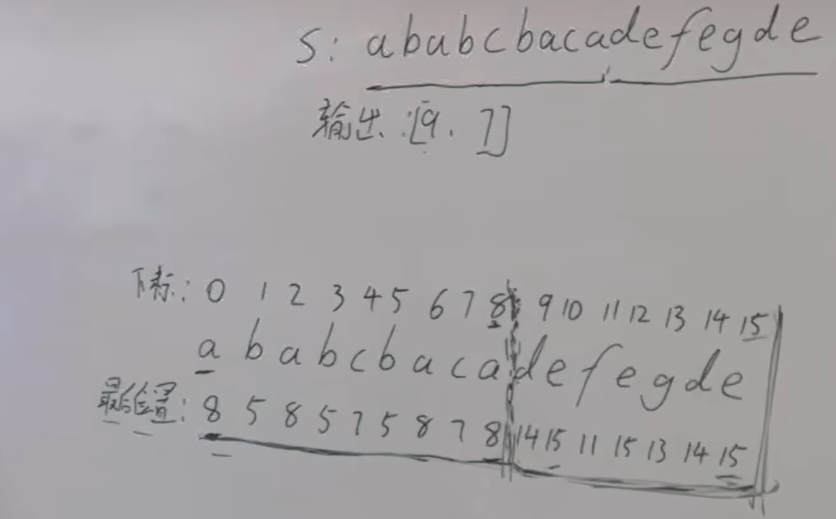 S: ababcbacadefegde
输出:[9, 7]
下标: 0 1 2 3 4 5 6 7 8 9 10 11 12 13 14 15
a b a b c b a c a d e f e g d e
最后位置: 8 5 8 5 7 5 8 7 8 14 15 11 15 13 14 15